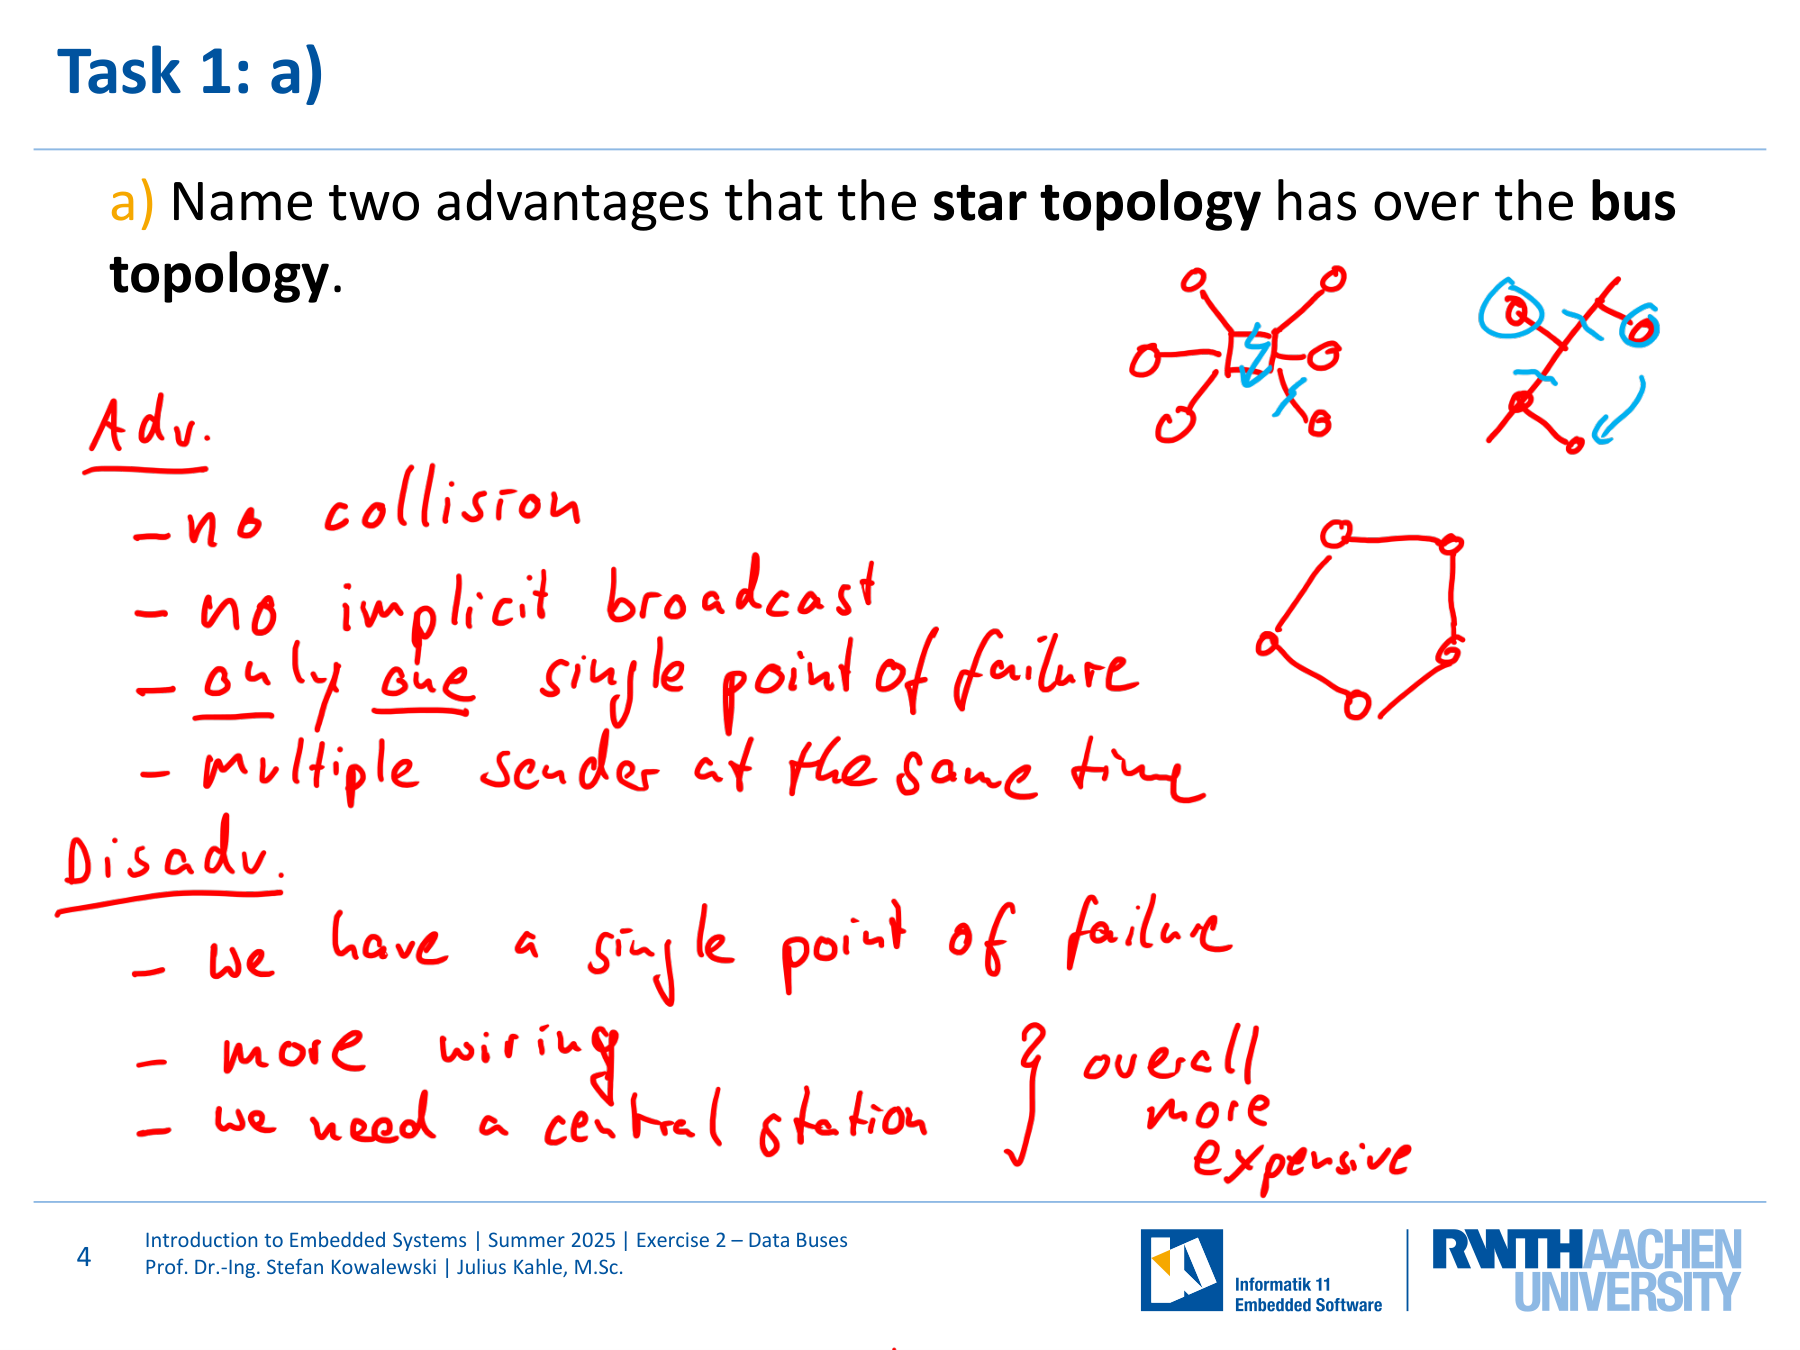 Task 1: a)
a) Name two advantages that the star topology has over the bus
topology.
Adv.
- no collision
- no implicit broadcast
- only one single point of failure
- multiple sender at the same time
Disadv.
- we have a single point of failure
- more wiring
- we need a central station
} overall
more
expensive
4
Introduction to Embedded Systems | Summer 2025 | Exercise 2 – Data Buses
Prof. Dr.-Ing. Stefan Kowalewski | Julius Kahle, M.Sc.
Informatik 11
Embedded Software
RWTH AACHEN
UNIVERSITY